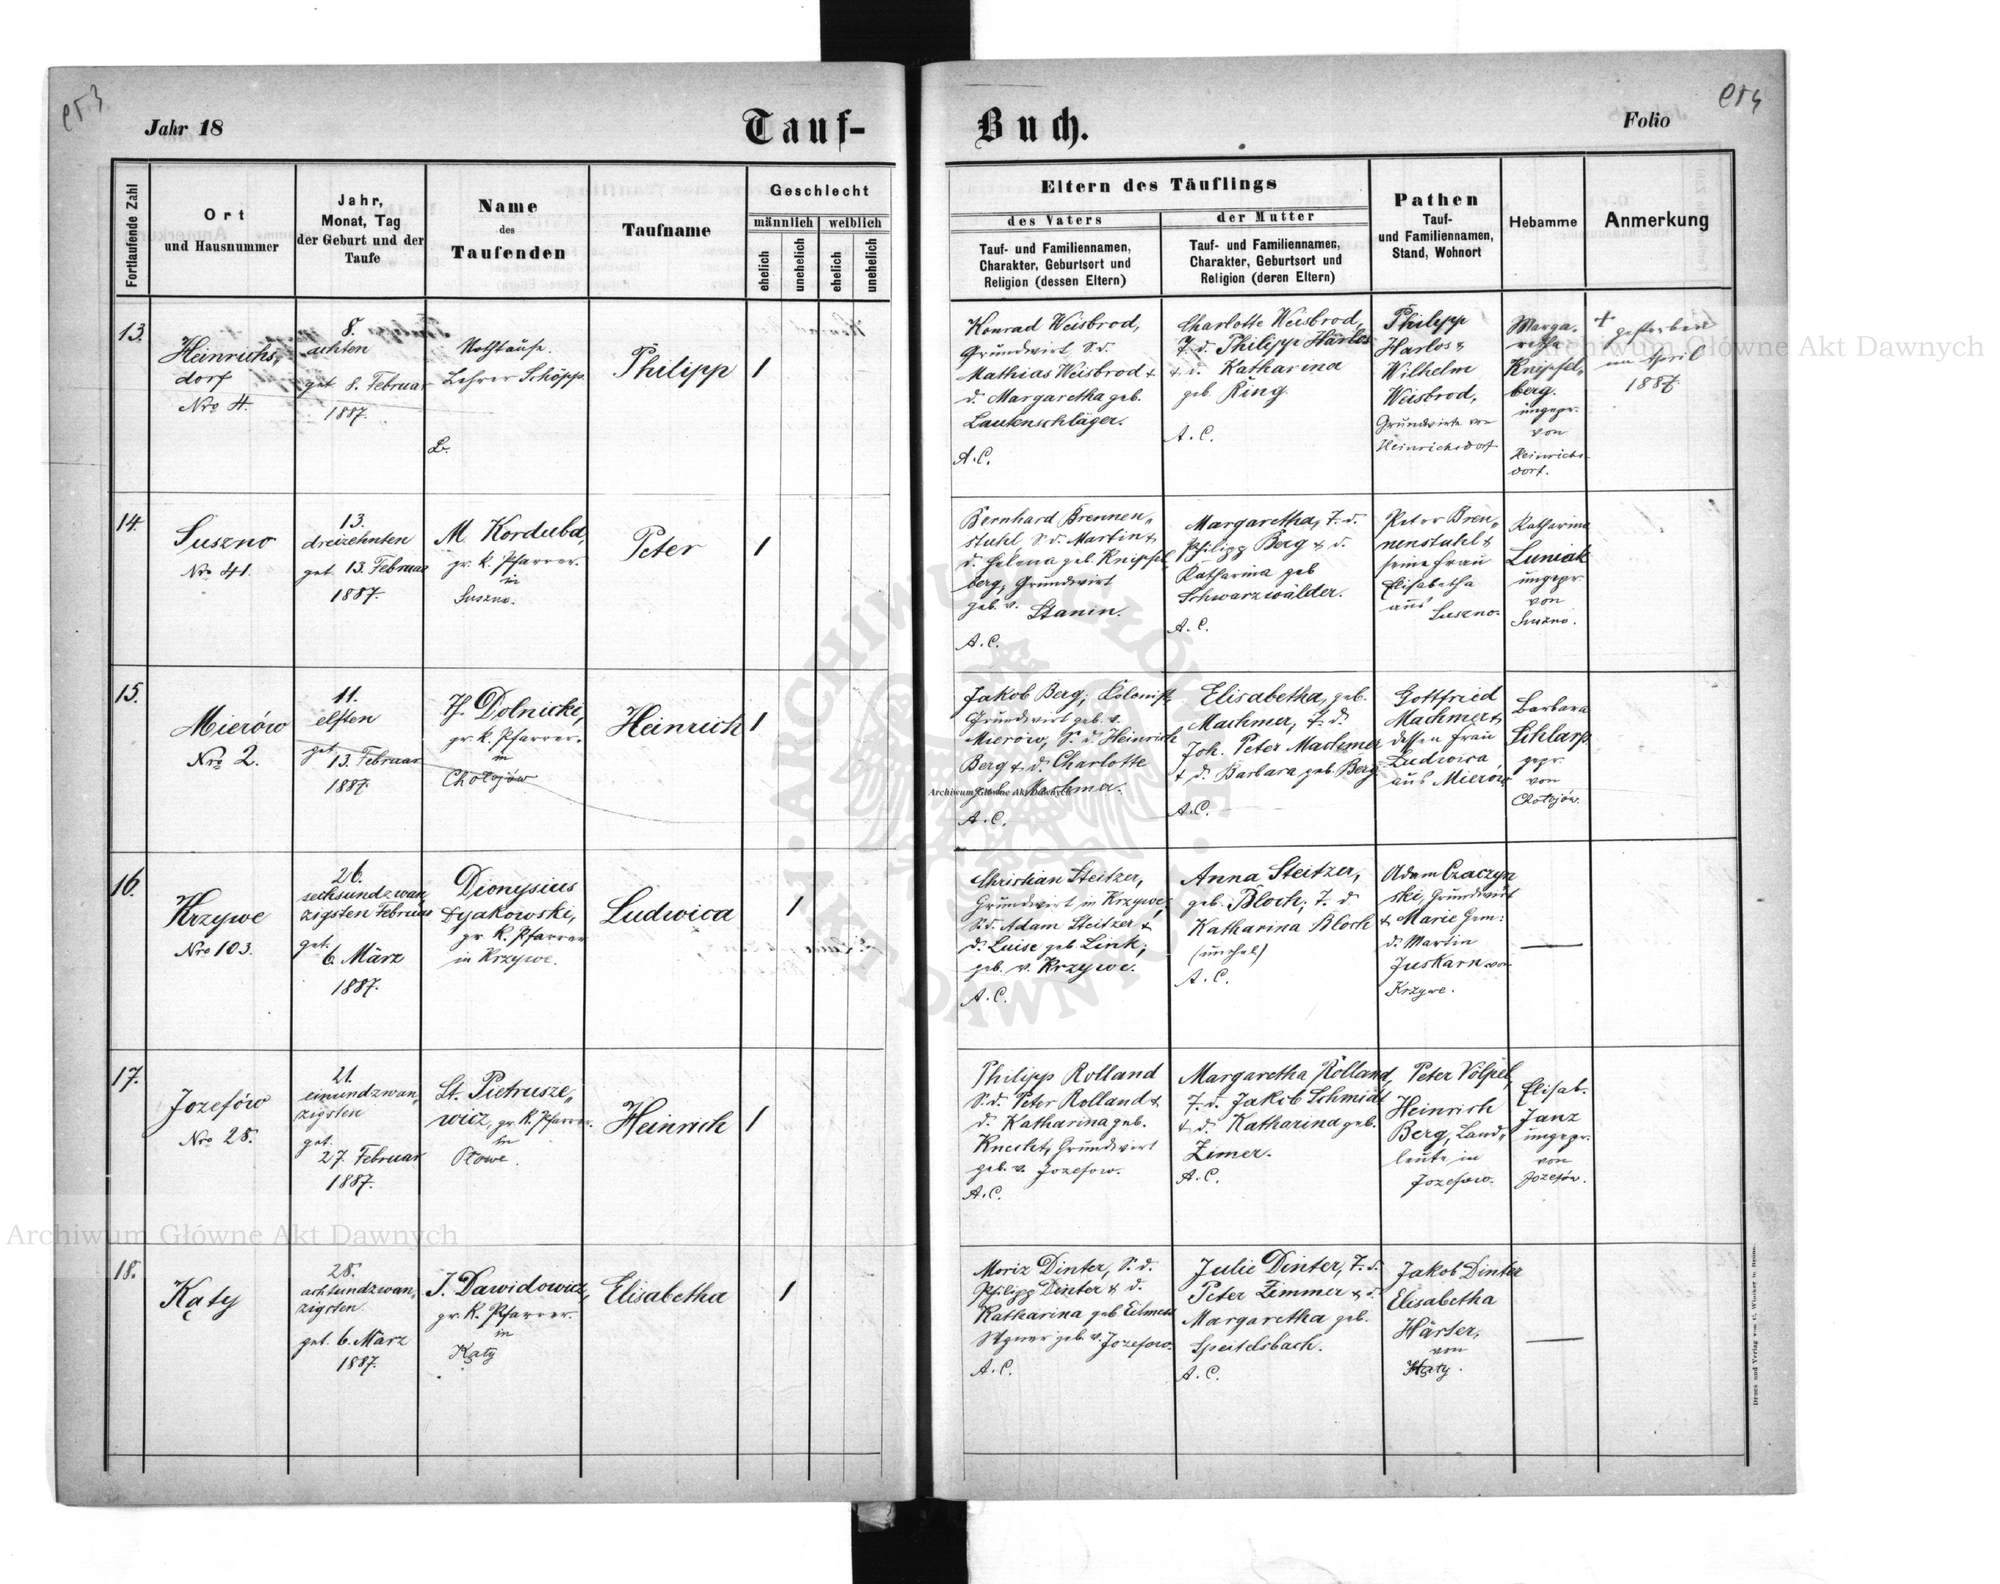 Jahr 18
Tauf-
Buch.
Folio
Fortlaufende Zahl
Ort
und Hausnummer
Jahr,
Monat, Tag
der Geburt und der
Taufe
Name
des
Taufenden
Taufname
Geschlecht
männlich
weiblich
ehelich
unehelich
ehelich
unehelich
Eltern des Täuflings
des Vaters
Tauf- und Familiennamen,
Charakter, Geburtsort und
Religion (dessen Eltern)
der Mutter
Tauf- und Familiennamen,
Charakter, Geburtsort und
Religion (deren Eltern)
Pathen
Tauf-
und Familiennamen,
Stand, Wohnort
Hebamme
Anmerkung
13.
Heinrichs„
dorf
Nro 4.
8.
achten
get. 8. Februar
1887.
Nothtaufe.
Lehrer Schöpp.
Philipp
1
Konrad Weisbrod,
Grundwirt, S. d.
Mathias Weisbrod &
d. Margaretha geb.
Lautenschläger.
A. C.
Charlotte Weisbrod,
T. d. Philipp Harlos
& d. Katharina
geb. Ring.
A. C.
Philipp
Harlos &
Wilhelm
Weisbrod,
Grundwirte von
Heinrichsdorf
Marga„
retha
Knipfel„
berg.
ungepr.
von
Heinrichs
dorf.
+ gestorben
im April
1887.
14.
Suszno
Nro 41.
13.
dreizehnten
get. 13. Februar
1887.
M. Korduba,
gr. k. Pfarrer.
in
Suszno.
Peter
1
Bernhard Brennen„
stuhl S. d. Martin &
d. Helena geb. Knipfel
berg, Grundwirt
geb. v. Stanin.
A. C.
Margaretha, T. d.
Philipp Berg & d.
Katharina geb
Schwarzwälder.
A. C.
Peter Bren„
nenstuhl &
seine Frau
Elisabetha
aus Suszno.
Katharina
Luniak
ungepr.
von
Suszno.
15.
Mierów
Nro 2.
11.
elften
get.
13. Februar
1887.
H. Dolnicki,
gr. k. Pfarrer.
in
Chołojów
Heinrich
1
Jakob Berg, Kolonist,
Grundwirt geb. v.
Mierów, S. d. Heinrich
Berg & d. Charlotte
geb. Machmer.
A. C.
Elisabetha, geb.
Machmer, T. d.
Joh. Peter Machmer
& d. Barbara geb. Berg.
A. C.
Gottfried
Machmer &
dessen Frau
Ludwica
aus Mierów
Barbara
Schlarp
gepr.
von
Chołojów.
16.
Krzywe
Nro 103.
26.
sechsundzwan„
zigsten Februar
get.
6. März
1887.
Dionysius
Dyakowski,
gr. k. Pfarrer
in Krzywe.
Ludwica
1
Christian Steitzer,
Grundwirt in Krzywe,
S. d. Adam Steitzer &
d. Luise geb. Link,
geb. v. Krzywe.
A. C.
Anna Steitzer,
geb. Bloch, T. d.
Katharina Bloch
(unehel)
A. C.
Adam Czaczyn
ski, Grundwirt
& Marie Gem:
d. Martin
Juskarn von
Krzywe.
17.
Jozefów
Nro 28.
21.
einundzwan„
zigsten
get.
27. Februar
1887.
St. Pietrusze„
wicz, gr. k. Pfarrer.
in
Płowe.
Heinrich
1
Philipp Rolland
S. d. Peter Rolland &
d. Katharina geb.
Knecht, Grundwirt
geb. v. Jozefow.
A. C.
Margaretha Rolland,
T. d. Jakob Schmidt
& d. Katharina geb.
Zimer.
A. C.
Peter Völpel,
Heinrich
Berg, Land„
leute in
Jozefow.
Elisab.
Janz
ungepr.
von
Jozefów.
18.
Kąty
28.
achtundzwan„
zigsten
get. 6. März
1887.
J. Dawidowicz,
gr. k. Pfarrer.
in
Kąty
Elisabetha
1
Moriz Dinter, S. d.
Philipp Dinter & d.
Katharina geb
geb. v. Jozefow.
A. C.
Julie Dinter, T. d.
Peter Zimmer & d.
Margaretha geb.
Speitelsbach.
A. C.
Jakob Dinter
Elisabetha
Härter,
von
Kąty.
Druck und Verlag von C. Winiker in Brünn.
Archiwum Główne Akt Dawnych
Archiwum Główne Akt Dawnych
Archiwum Główne Akt Dawnych
ARCHIWUM GŁÓWNE AKT DAWNYCH